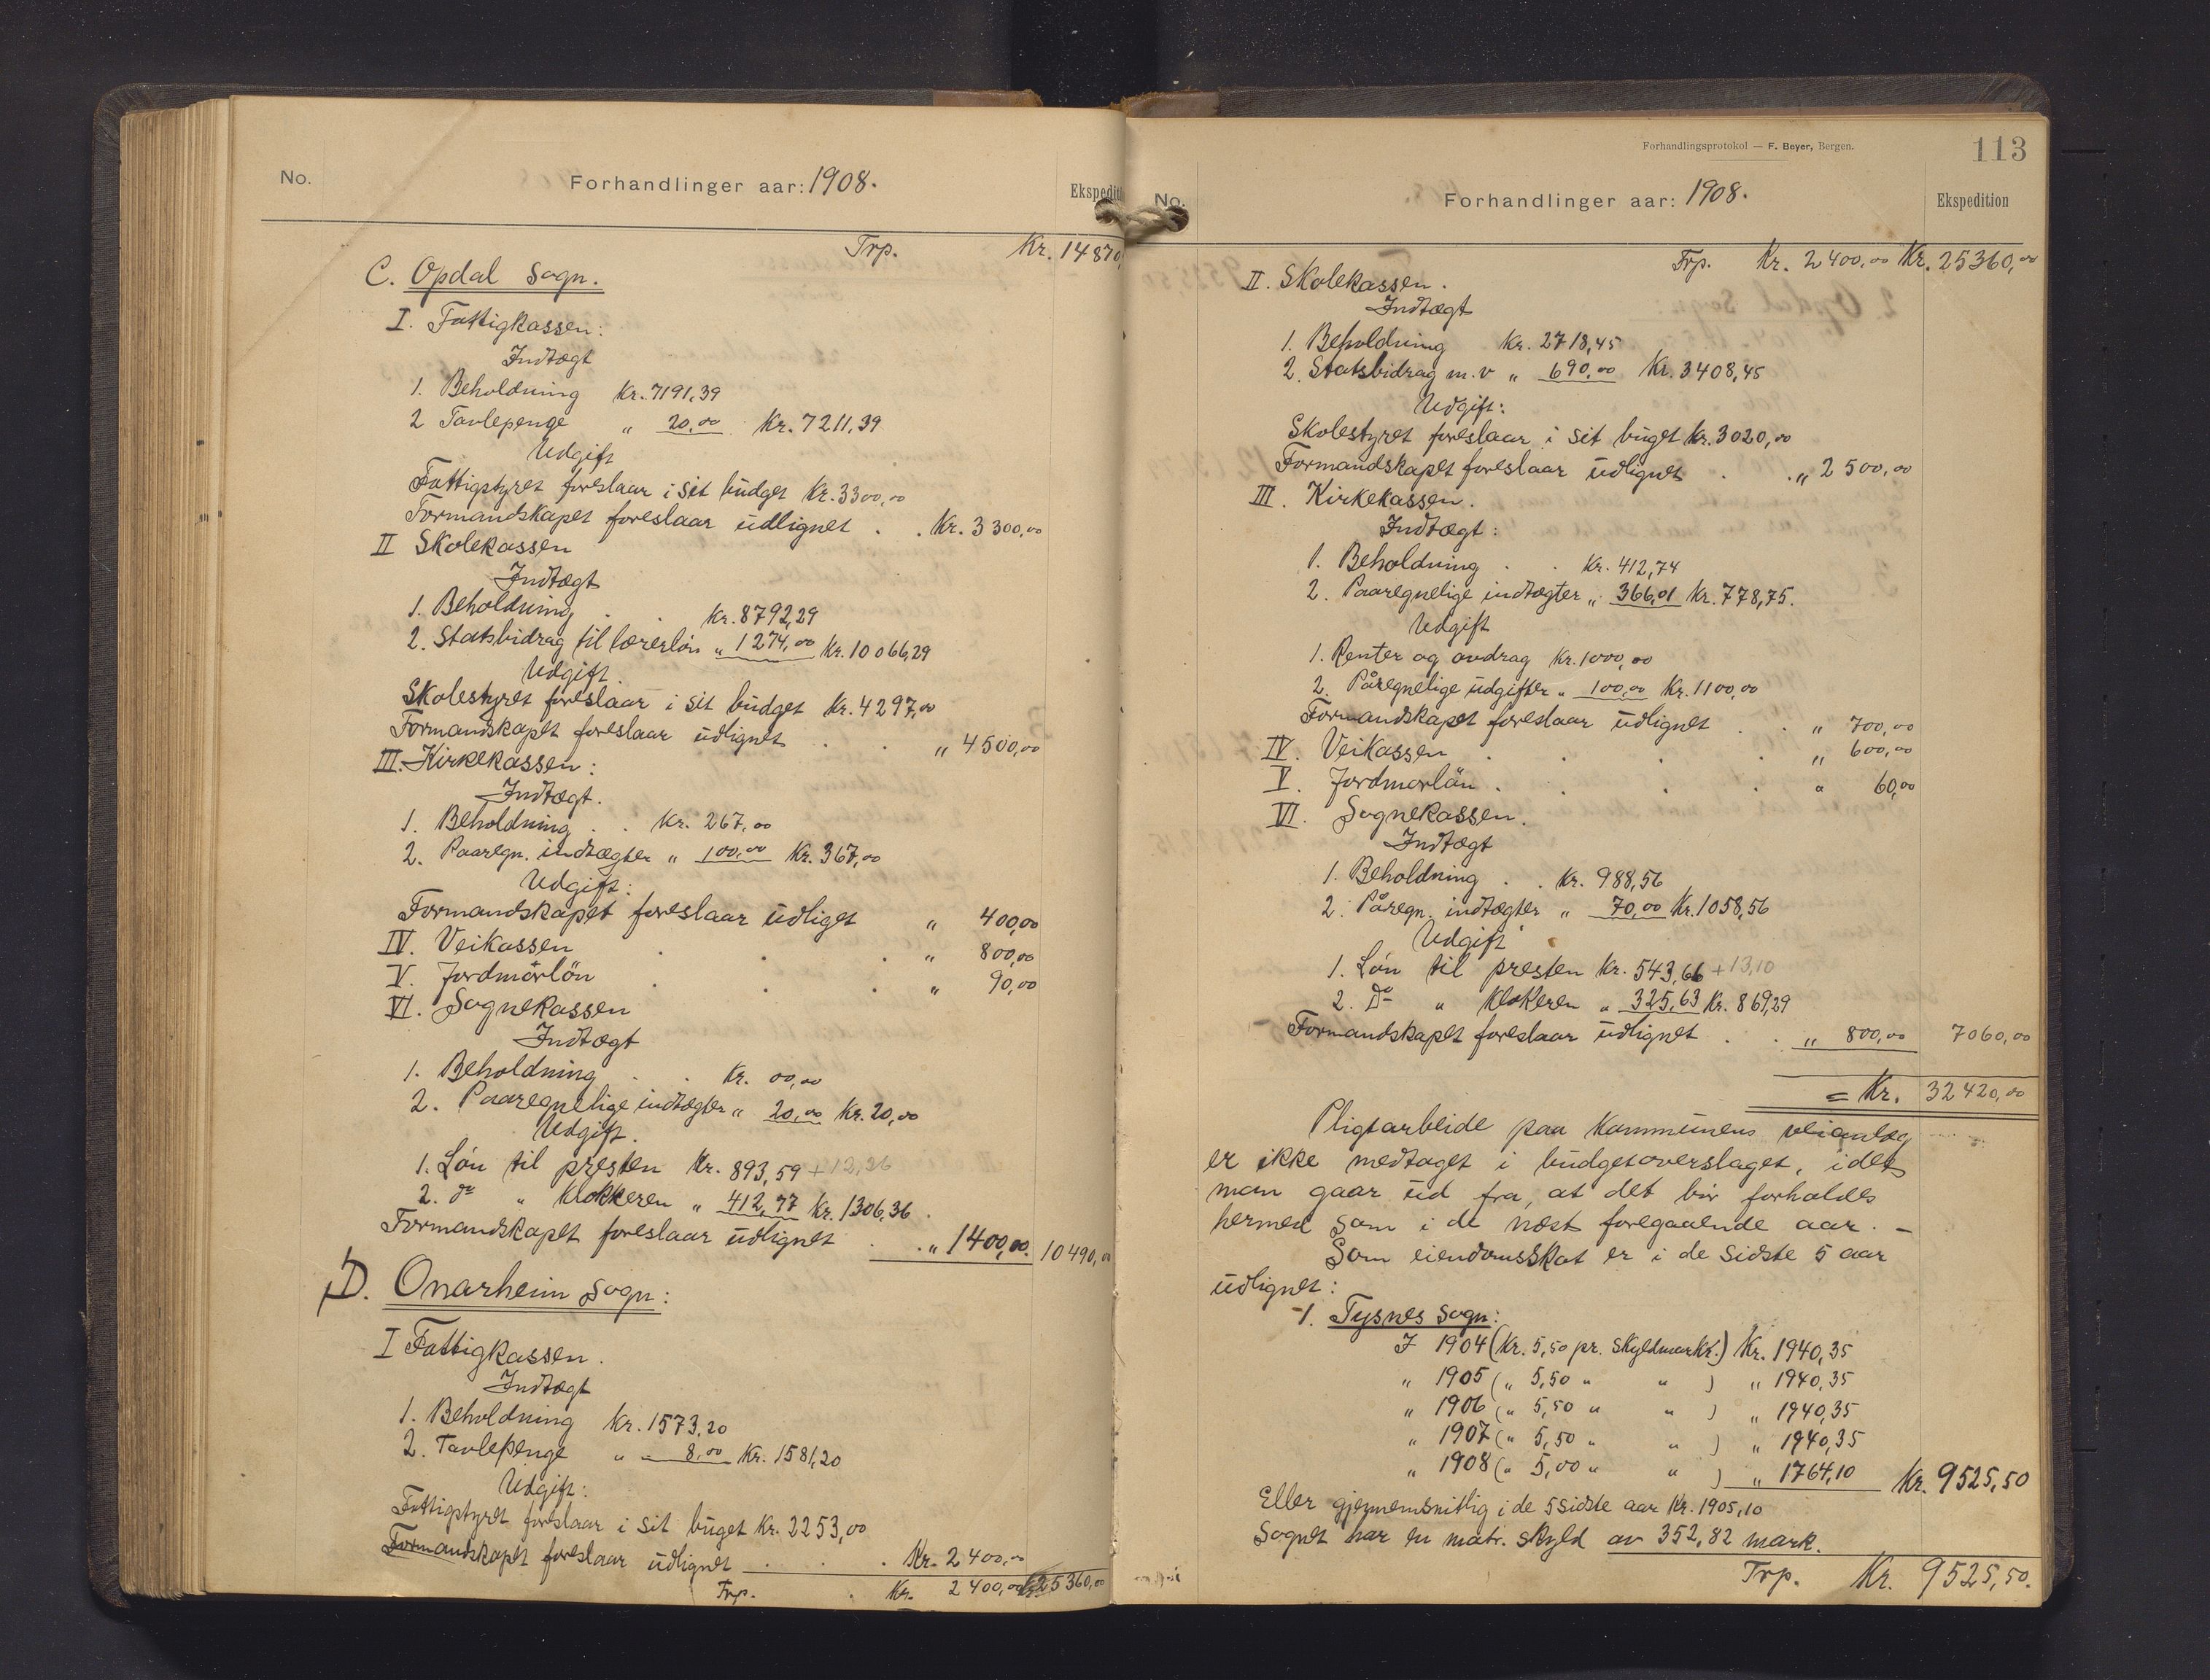 No.
Forhandlinger aar: 1908.
Ekspedit
Trp. Kr. 14870,
C. Opdal Sogn.
I. Fattigkassen:
Indtægt
1. Beholdning Kr. 7191,39
2 Tavlepenge „ 20,00 Kr. 7211,39
Udgift
Fattigstyret foreslaar i sit budget Kr. 3300,00
Formandskapet foreslaar udlignet . . Kr. 3300,00
II Skolekassen
Indtægt
1. Beholdning . . Kr. 8792,29
2. Statsbidrag til lærerløn „ 1274,00 Kr. 10066,29
Udgift.
Skolestyret foreslaar i sit budget Kr. 4297,00
Formandskapet foreslaar udlignet . . „ 4500,00
III. Kirkekassen:
Indtægt.
1. Beholdning . . Kr. 267,00
2. Paaregn. indtægter „ 100,00 Kr. 367,00
Udgift:
Formandskapet foreslaar udliget „ 400,00
IV. Veikassen . . . „ 800,00
V. Jordmorlön . . . „ 90,00
VI. Sognekassen
Indtægt
1. Beholdning . . Kr. 00,00
2. Paaregnelige indtægter „ 20,00 Kr. 20,00
Udgift.
1. Løn til presten Kr. 893,59 + 12,26
2. do „ klokkeren „ 412,77 Kr. 1306,36.
Formandskapet foreslaar udlignet . . „ 1400,00. 10490,00
D. Onarheim sogn:
I Fattigkassen.
Indtægt
1. Beholdning Kr. 1573,20
2. Tavlepenge „ 8,00 Kr. 1581,20
Udgift:
Fattigstyret foreslaar i sit buget Kr. 2253,00
Formandskapet foreslaar udlignet . . . Kr. 2400,00
Trp. . Kr. 2400,00 Kr. 25360,00
Forhandlingsprotokol — F. Beyer, Bergen.
113
No.
Forhandlinger aar: 1908.
Ekspedition
Trp. Kr. 2400,00 Kr. 25360,00
II. Skolekassen.
Indtægt
1. Beholdning Kr. 2718,45
2. Statsbidrag m.v „ 690,00 Kr. 3408,45
Udgift:
Skolestyret foreslaar i sit buget Kr. 3020,00
Formandskapet foreslaar udlignet . . „ 2500,00
III. Kirkekassen.
Indtægt:
1. Beholdning . . Kr. 412,74
2. Paaregnelige indtægter „ 366,01 Kr. 778,75.
Udgift
1. Renter og avdrag Kr. 1000,00
2. Påregnelige udgifter „ 100,00 Kr. 1100,00
Formandskapet foreslaar udlignet . . „ 700,00
IV. Veikassen . . . . „ 600,00
V. Jordmorlön . . . . „ 60,00
VI. Sognekassen.
Indtægt
1. Beholdning . . Kr. 988,56
2. Påregn. indtægter „ 70,00 Kr. 1058,56
Udgift
1. Løn til presten Kr. 543,66 + 13,10
2. Do „ klokeren „ 325,63 Kr. 869,29
Formandskapet foreslaar udlignet . . „ 800,00 7060,00
= Kr. 32420,00
Pligtarbeide paa kommunens veianlæg
er ikke medtaget i budgetoverslaget, idet
man gaar ud fra, at det bir forholdes
hermed som i de næst foregaaende aar. –
Som eiendomsskat er i de sidste 5 aar
udlignet:
1. Tysnes sogn:
I 1904 (Kr. 5,50 pr. skyldmark.) Kr. 1940,35
„ 1905 („ 5,50 „ „ ) „ 1940,35
„ 1906 („ 5,50 „ „ ) „ 1940,35
„ 1907 („ 5,50 „ „ ) „ 1940,35
„ 1908 („ 5,00 „ „ ) „ 1764,10 Kr. 9525,50
Eller gjennemsnitlig i de 5 sidste aar Kr. 1905,10
Sognet har en matr. skyld av 352,82 mark.
Trp. Kr. 9525,50.